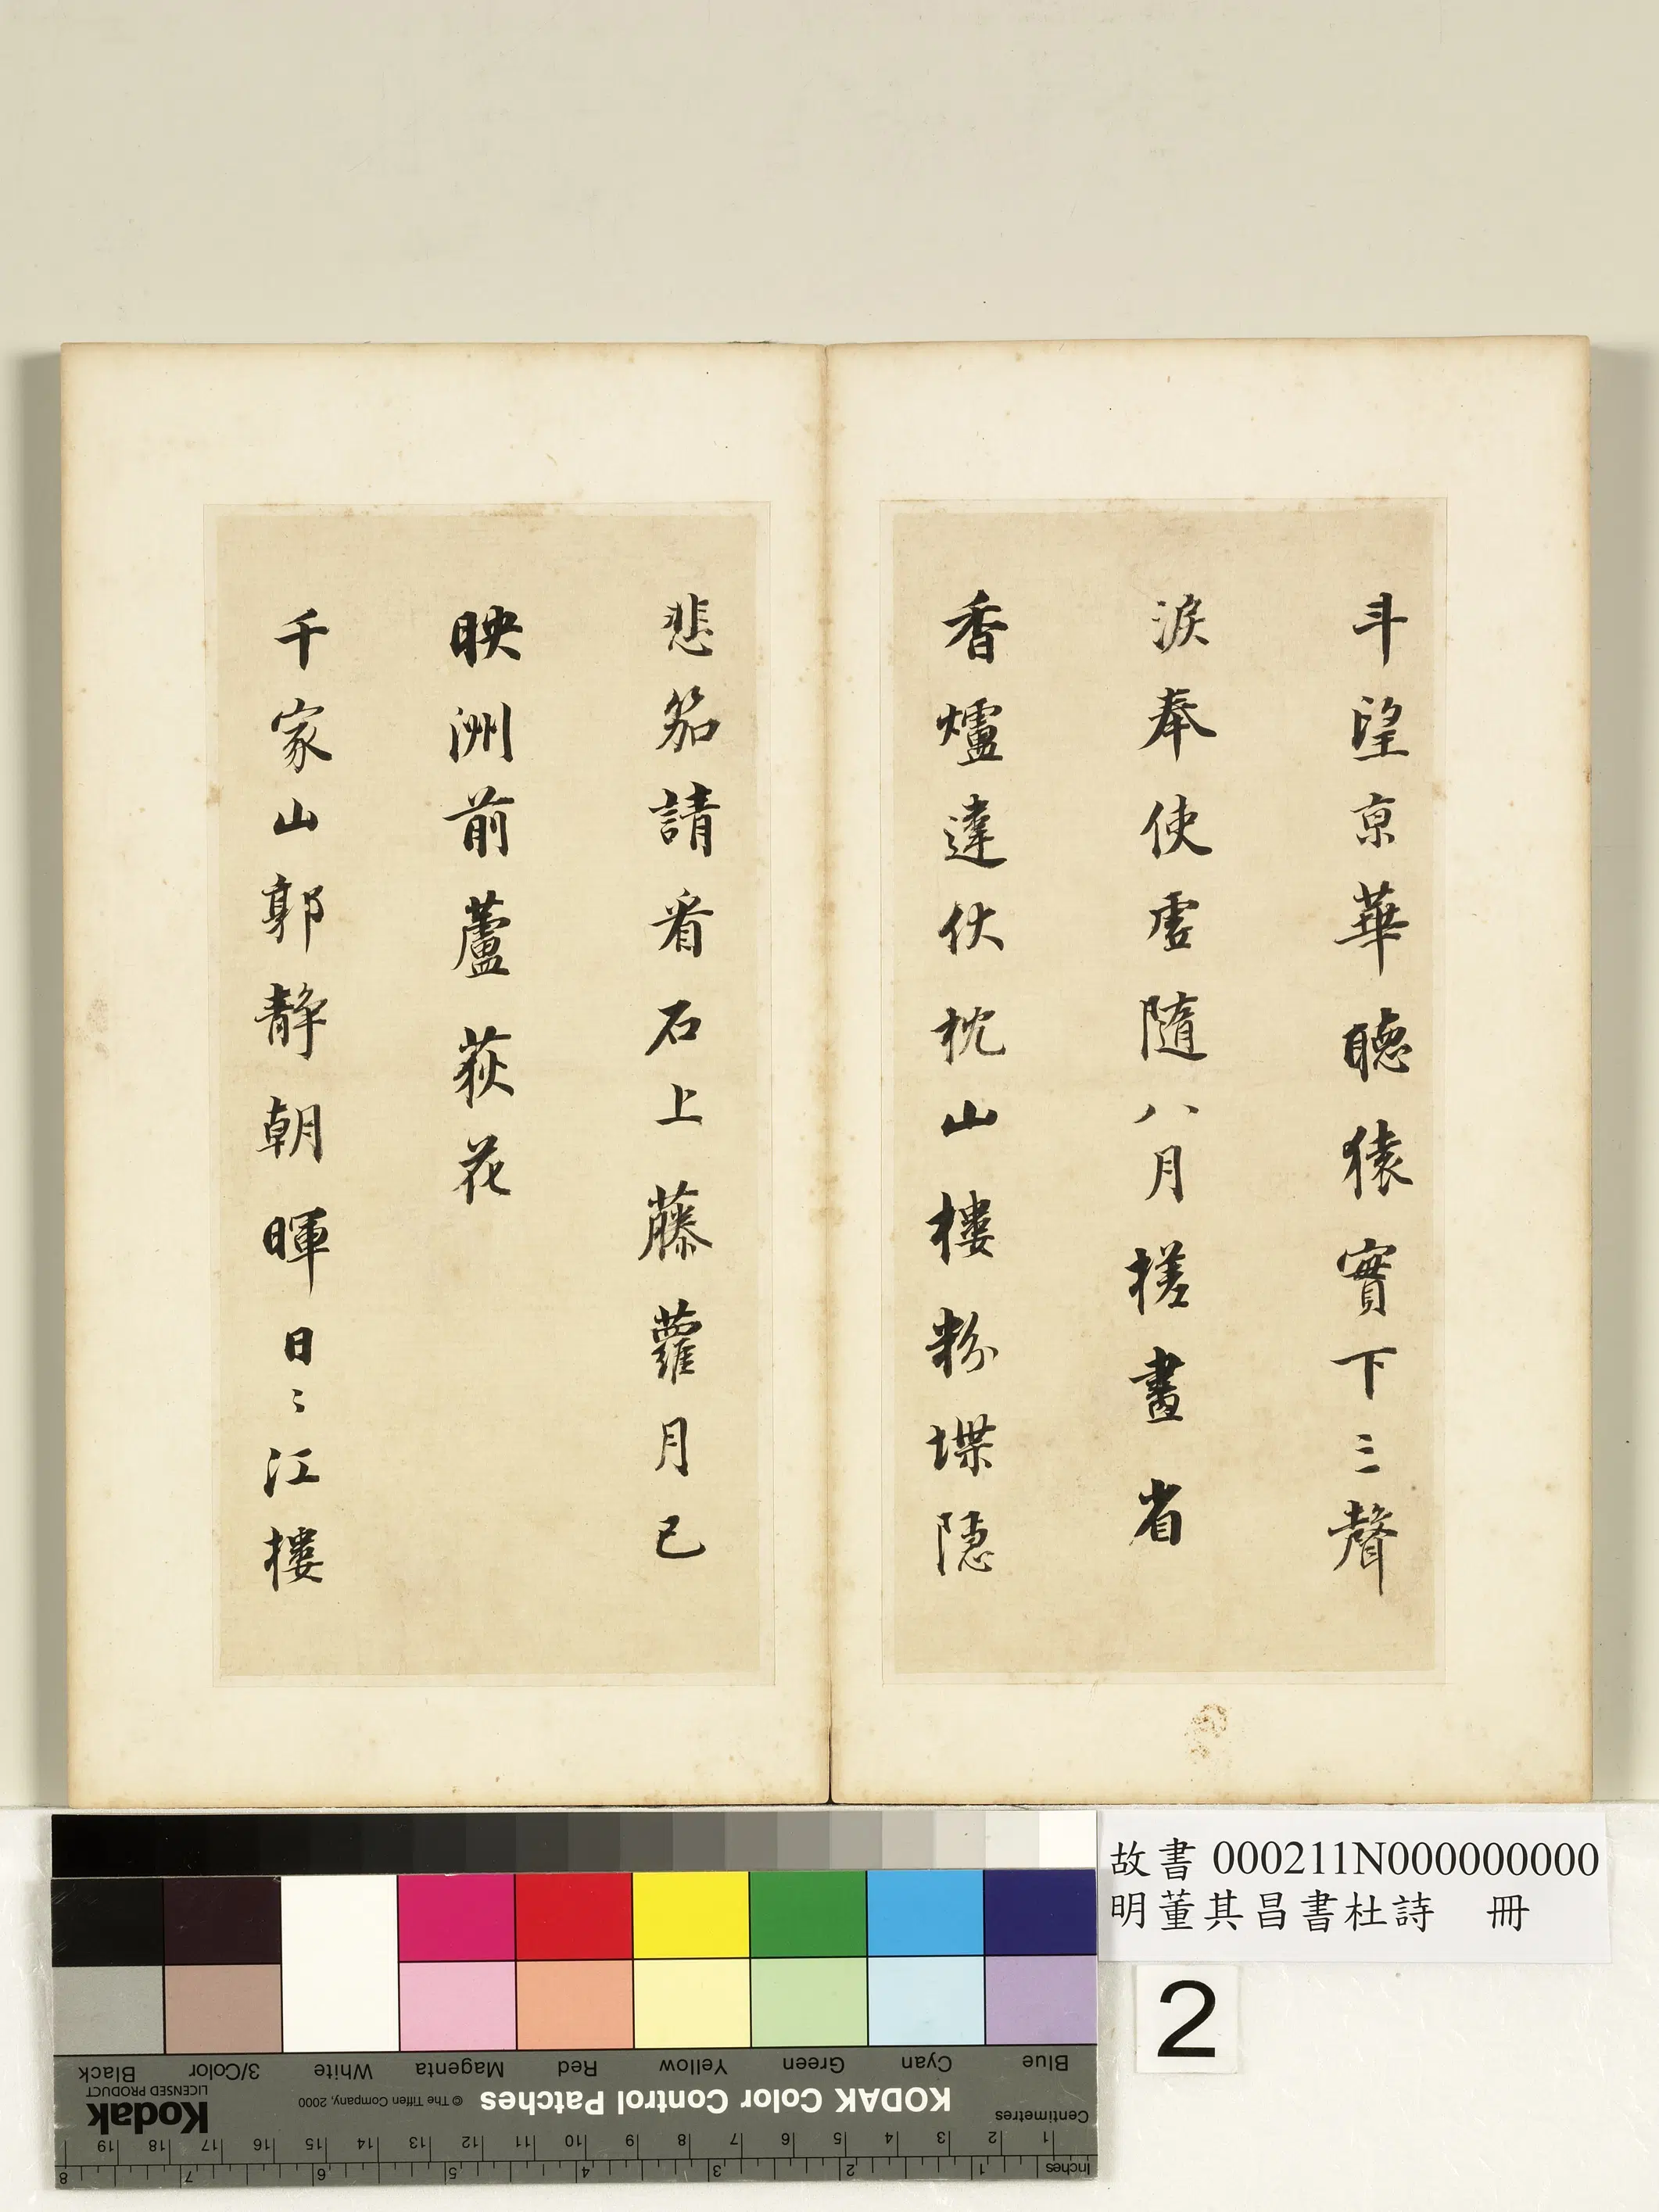 斗望京華聽猿實下三聲
淚奉使虛隨八月槎畫省
香爐違伏枕山樓粉堞隱
悲笳請看石上藤蘿月已
映洲前蘆荻花
千家山郭静朝暉日〻江樓
故書 000211N000000000
明董其昌書杜詩 冊
2
Black 3/Color White Magenta Red Yellow Green Cyan Blue
Kodak
LICENSED PRODUCT
© The Tiffen Company, 2000
KODAK Color Control Patches
Centimetres
1 2 3 4 5 6 7 8 9 10 11 12 13 14 15 16 17 18 19
Inches
1 2 3 4 5 6 7 8